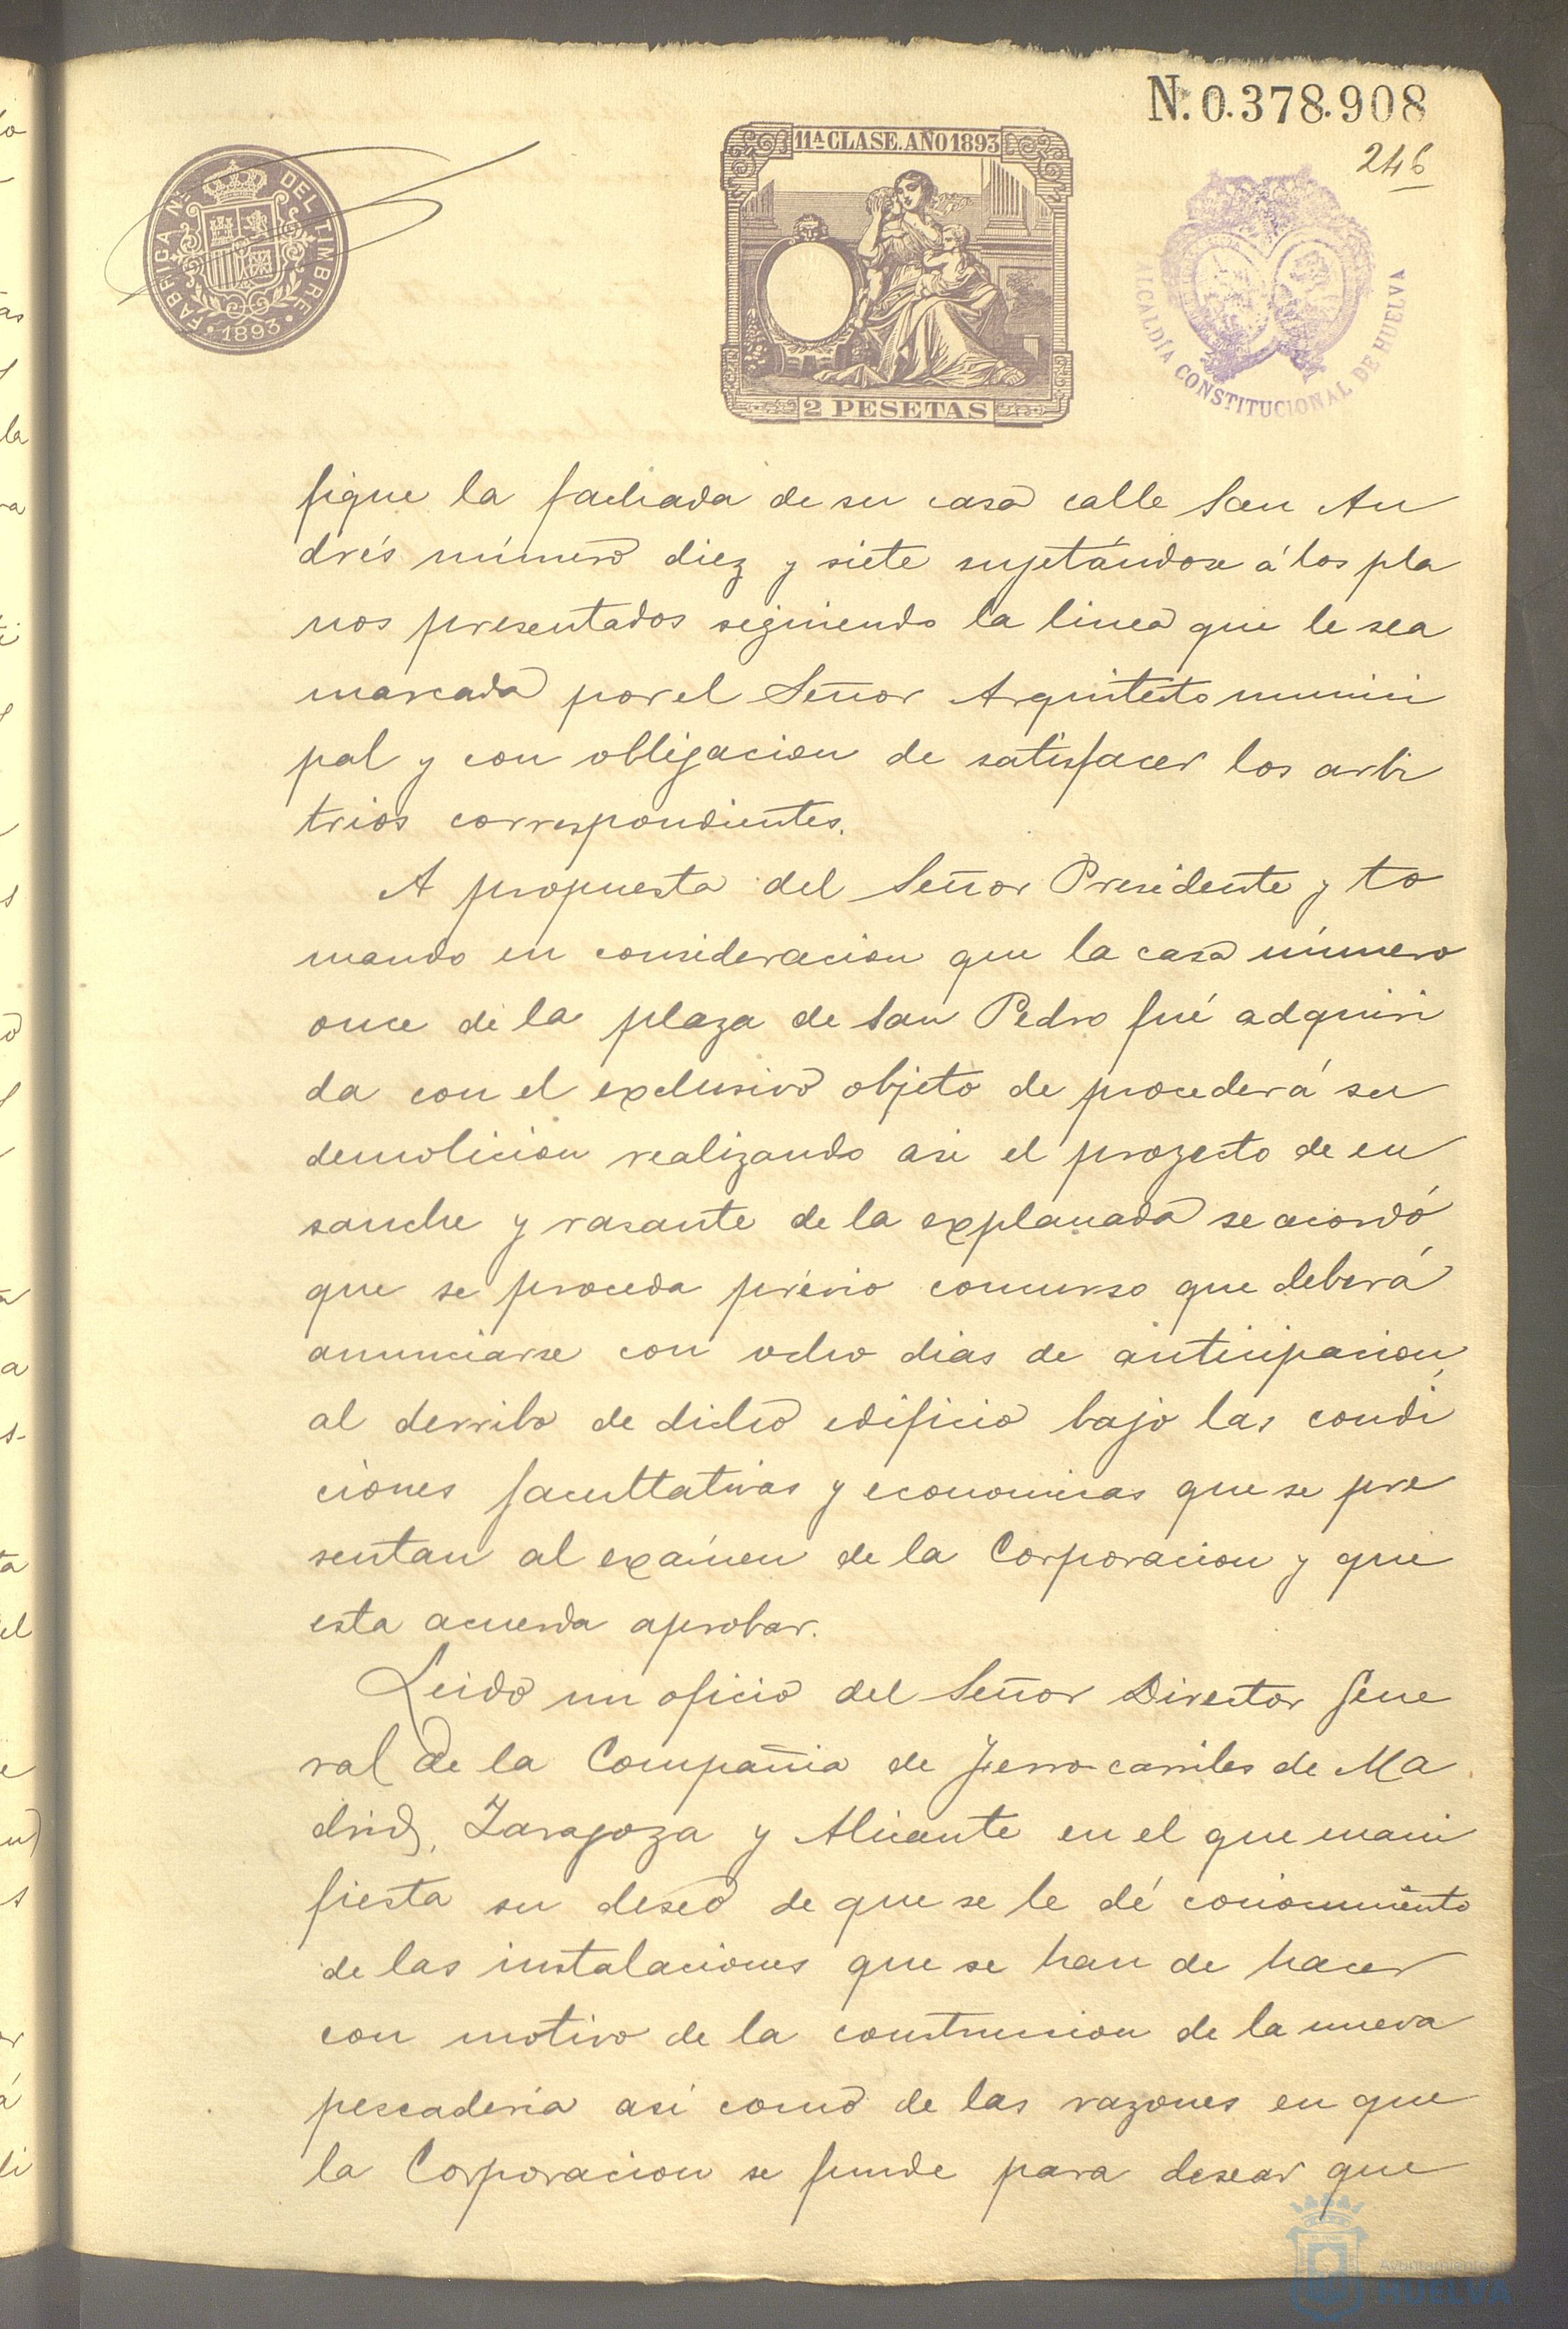 N. 0.378.908
246
11ª CLASE. AÑO 1893
FABRICA Nªˡ DEL TIMBRE
1893
ALCALDÍA CONSTITUCIONAL DE HUELVA
2 PESETAS
fique la fachada de su casa calle San An
drés número diez y siete sujetándose á los pla
nos presentados siguiendo la linea que le sea
marcada por el Señor Arquitecto munici
pal y con obligacion de satisfacer los arbi
trios correspondientes.
A propuesta del Señor Presidente y to
mando en consideracion que la casa número
once de la plaza de San Pedro fué adquiri
da con el exclusivo objeto de proceder á su
demolicion realizando asi el proyecto de en
sanche y rasante de la explanada se acordó
que se proceda prévio concurso que deberá
anunciarse con ocho dias de anticipacion,
al derribo de dicho edificio bajo las condi
ciones facultativas y economicas que se pre
sentan al exámen de la Corporacion y que
esta acuerda aprobar.
Leido un oficio del Señor Director Gene
ral de la Compañia de Ferro-carriles de Ma
drid, Zaragoza y Alicante en el que mani
fiesta su deseo de que se le dé conocimiento
de las instalaciones que se han de hacer
con motivo de la construccion de la nueva
pescaderia asi como de las razones en que
la Corporacion se funde para desear que
Ayuntamiento de
HUELVA